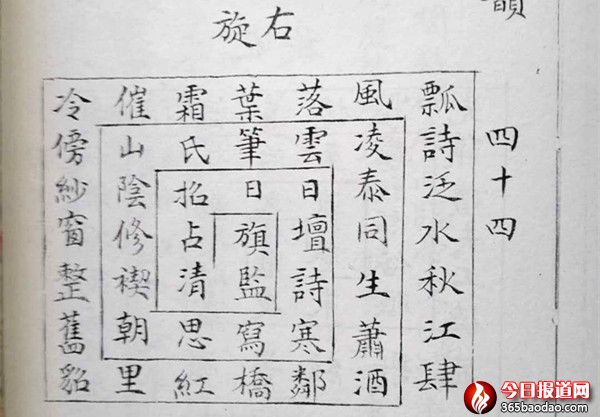 右旋
四十四
瓢詩泛水秋江肆
風凌泰同生蕭酒
落雲日壇詩寒鄰
葉筆日旗監寫橋
霜氏招占清思紅
催山陰修禊朝里
冷傍紗窗整舊貂
今日报道网
365baodao.com